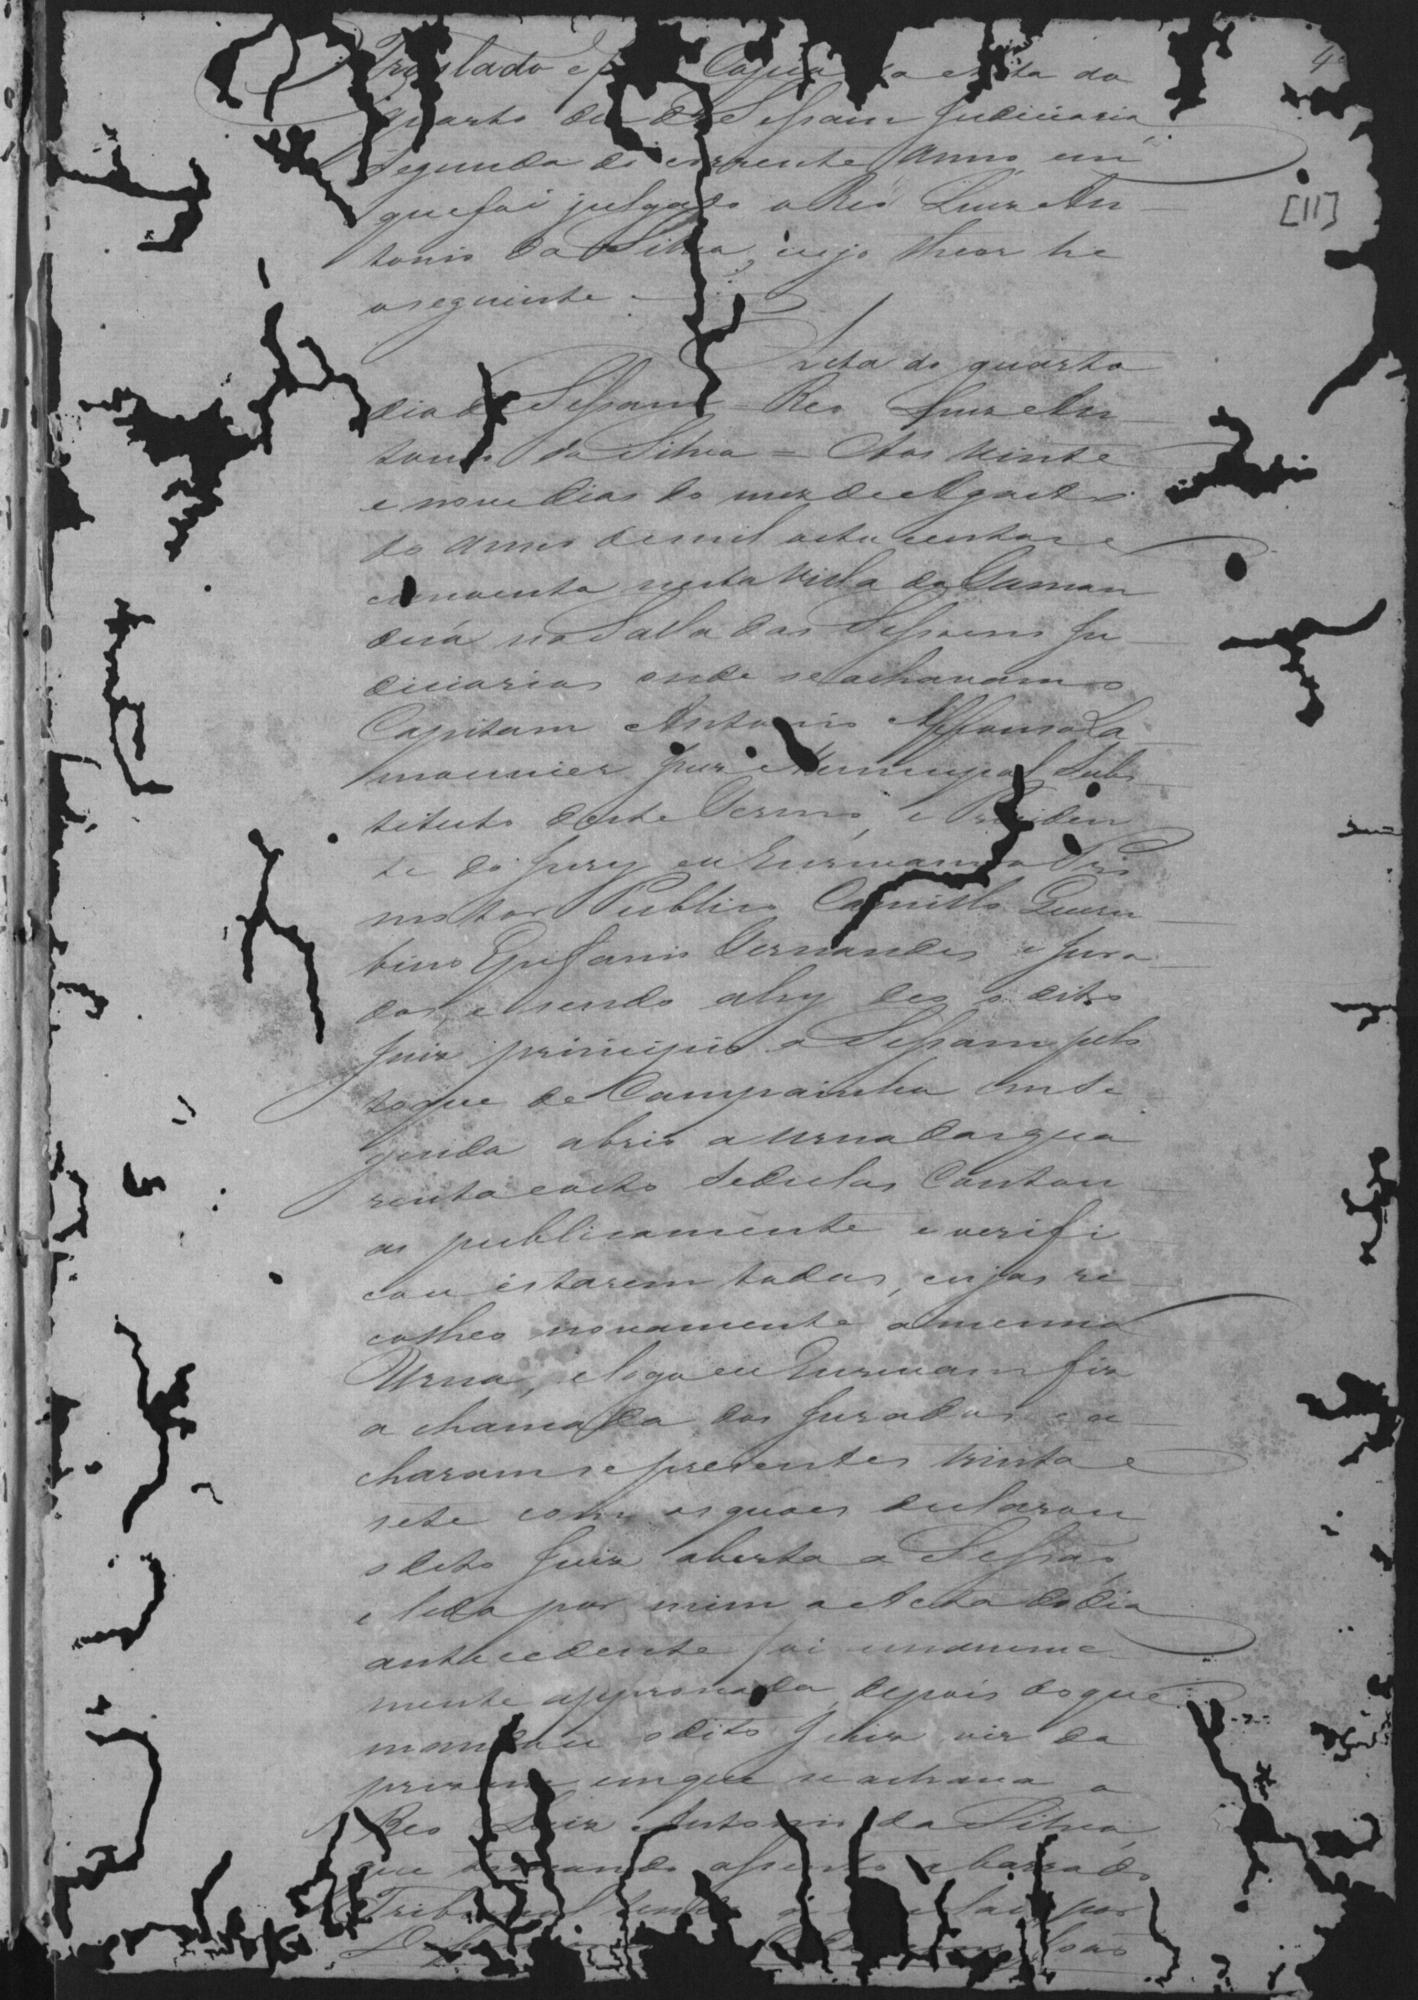 4
Traslado e Copia da acta do
quarto dia da Sessam Judiciaria
Segunda do corrente Anno em
[11]
que foi julgado o Reo Luiz An
tonio da Silva, cujo theor he
o seguinte
Acta do quarto
dia de Sessam = Reo Luiz An
tonio da Silva = Aos vinte
e nove dias do mez de Agosto
do anno de mil oito centos e
cincoenta nesta Villa do Taman
duá na Salla das Sessoens Ju
diciarias onde se achavam o
Capitam Antonio Affonso La
mounier Juiz Municipal Subs
tituto deste Termo, e Presiden
te do Jury eu Escrivam o Pro
motor Publico Camillo
Epifanio Fernandes e Jura
dos, e sendo ahy deo o dito
Juiz principio a Sessam pelo
toque de Campainha em Se
guida abrio a urna das qua
renta e oito Sedulas Contou
as publicamente e verifi
cou estarem todas, cujas re
colheo novamente a mesma
Urna, e logo eu Escrivam fiz
a chamada dos Jurados e a
charam se presentes trinta e
sete com os quaes declarou
o dito Juiz aberta a Sessão,
e lida por mim a Acta do dia
antecedente foi unanime
mente approvada, depois do que
mandou o dito Juiz vir da
prizam em que se achava o
Reo Luiz Antonio da Silva,
que tomando assento a barra do
Tribunal por
João